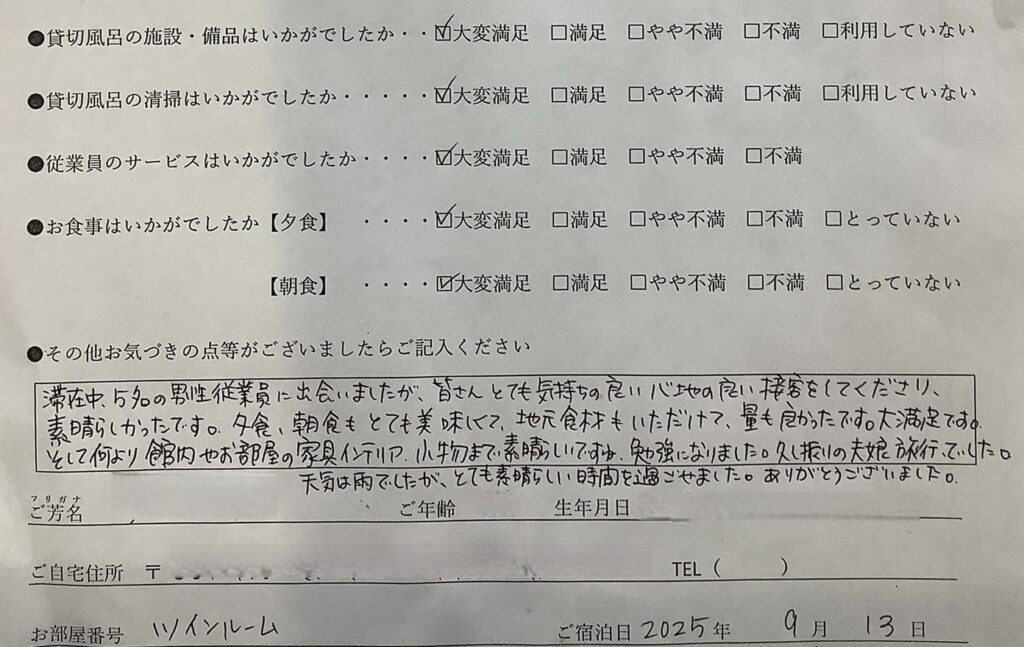 ●貸切風呂の施設・備品はいかがでしたか・・☑大変満足 □満足 □やや不満 □不満 □利用していない
●貸切風呂の清掃はいかがでしたか・・・・・☑大変満足 □満足 □やや不満 □不満 □利用していない
●従業員のサービスはいかがでしたか・・・・☑大変満足 □満足 □やや不満 □不満
●お食事はいかがでしたか【夕食】 ・・・・☑大変満足 □満足 □やや不満 □不満 □とっていない
【朝食】 ・・・・☑大変満足 □満足 □やや不満 □不満 □とっていない
●その他お気づきの点等がございましたらご記入ください
滞在中、5名の男性従業員に出会いましたが、皆さんとても気持ちの良い心地の良い接客をしてくださり、
素晴らしかったです。夕食、朝食もとても美味しくて、地元食材もいただけて、量も良かったです。大満足です。
そして何より館内やお部屋の家具インテリア、小物まで素晴らしいですね、勉強になりました。久し振りの夫娘旅行でした。
天気は雨でしたが、とても素晴らしい時間を過ごせました。ありがとうございました。
フリガナ
ご芳名 ご年齢 生年月日
ご自宅住所 〒 TEL( )
お部屋番号 ツインルーム ご宿泊日 2025年 9月 13日